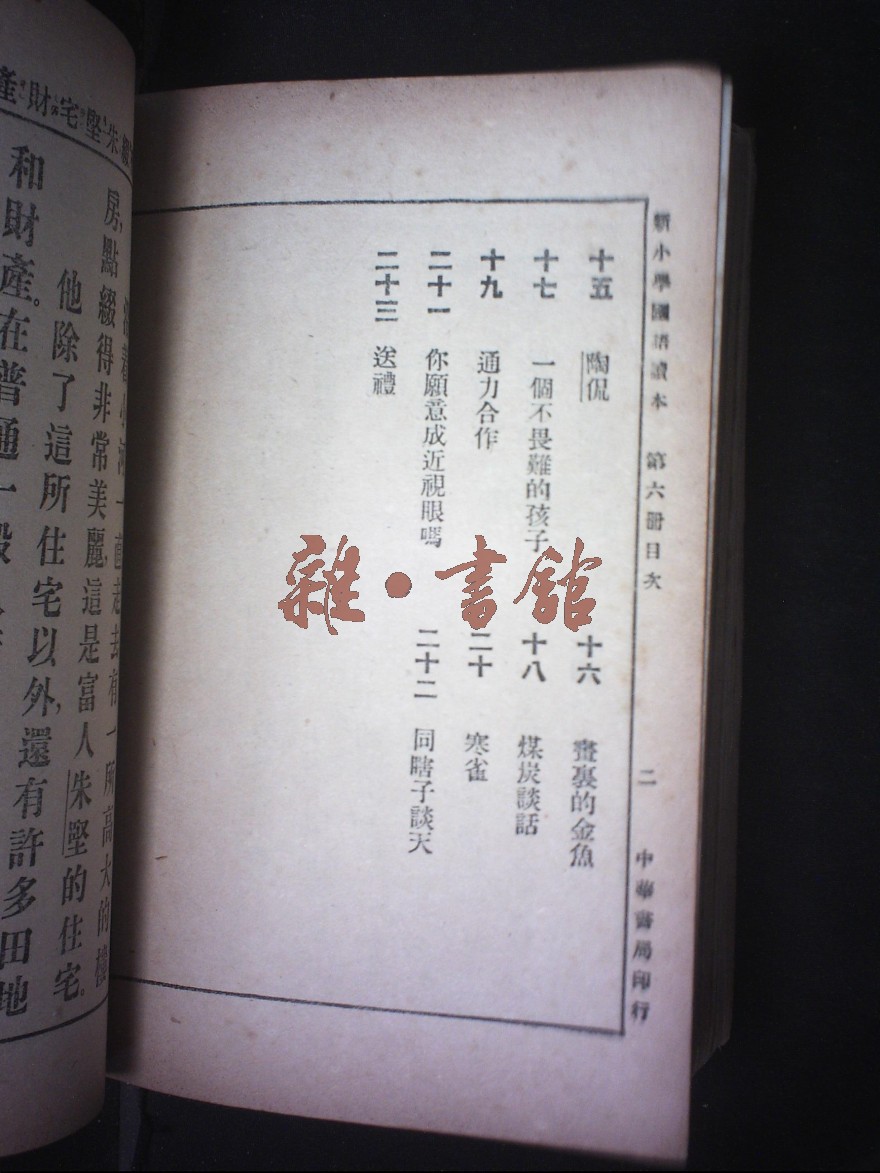 新小學國語讀本 第六册目次 二 中華書局印行
十五 陶侃 十六 畫裏的金魚
十七 一個不畏難的孩子 十八 煤炭談話
十九 通力合作 二十 寒雀
二十一 你願意成近視眼嗎 二十二 同瞎子談天
二十三 送禮
雜·書館
房，點綴得非常美麗這是富人朱堅的住宅。
他除了這所住宅以外，還有許多田地
和財產。在普通一般